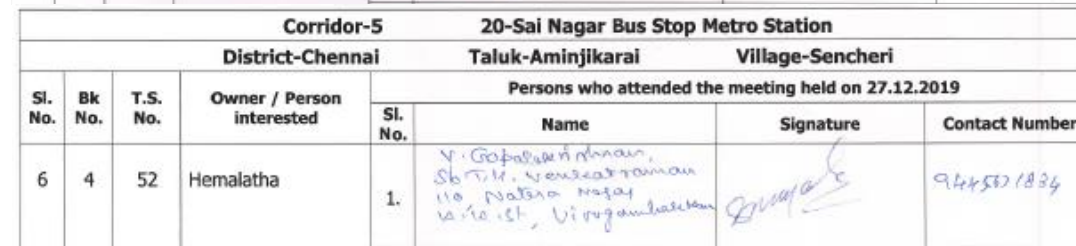 Corridor-5 20-Sai Nagar Bus Stop Metro Station
District-Chennai Taluk-Aminjikarai Village-Sencheri
Sl. No. Bk No. T.S. No. Owner / Person interested Persons who attended the meeting held on 27.12.2019
Sl. No. Name Signature Contact Number
6 4 52 Hemalatha 1.
V. Gopalakrishnan,
S/o T.K. Venkatraman
110 Natesa Nagar
St, Virugambakkam